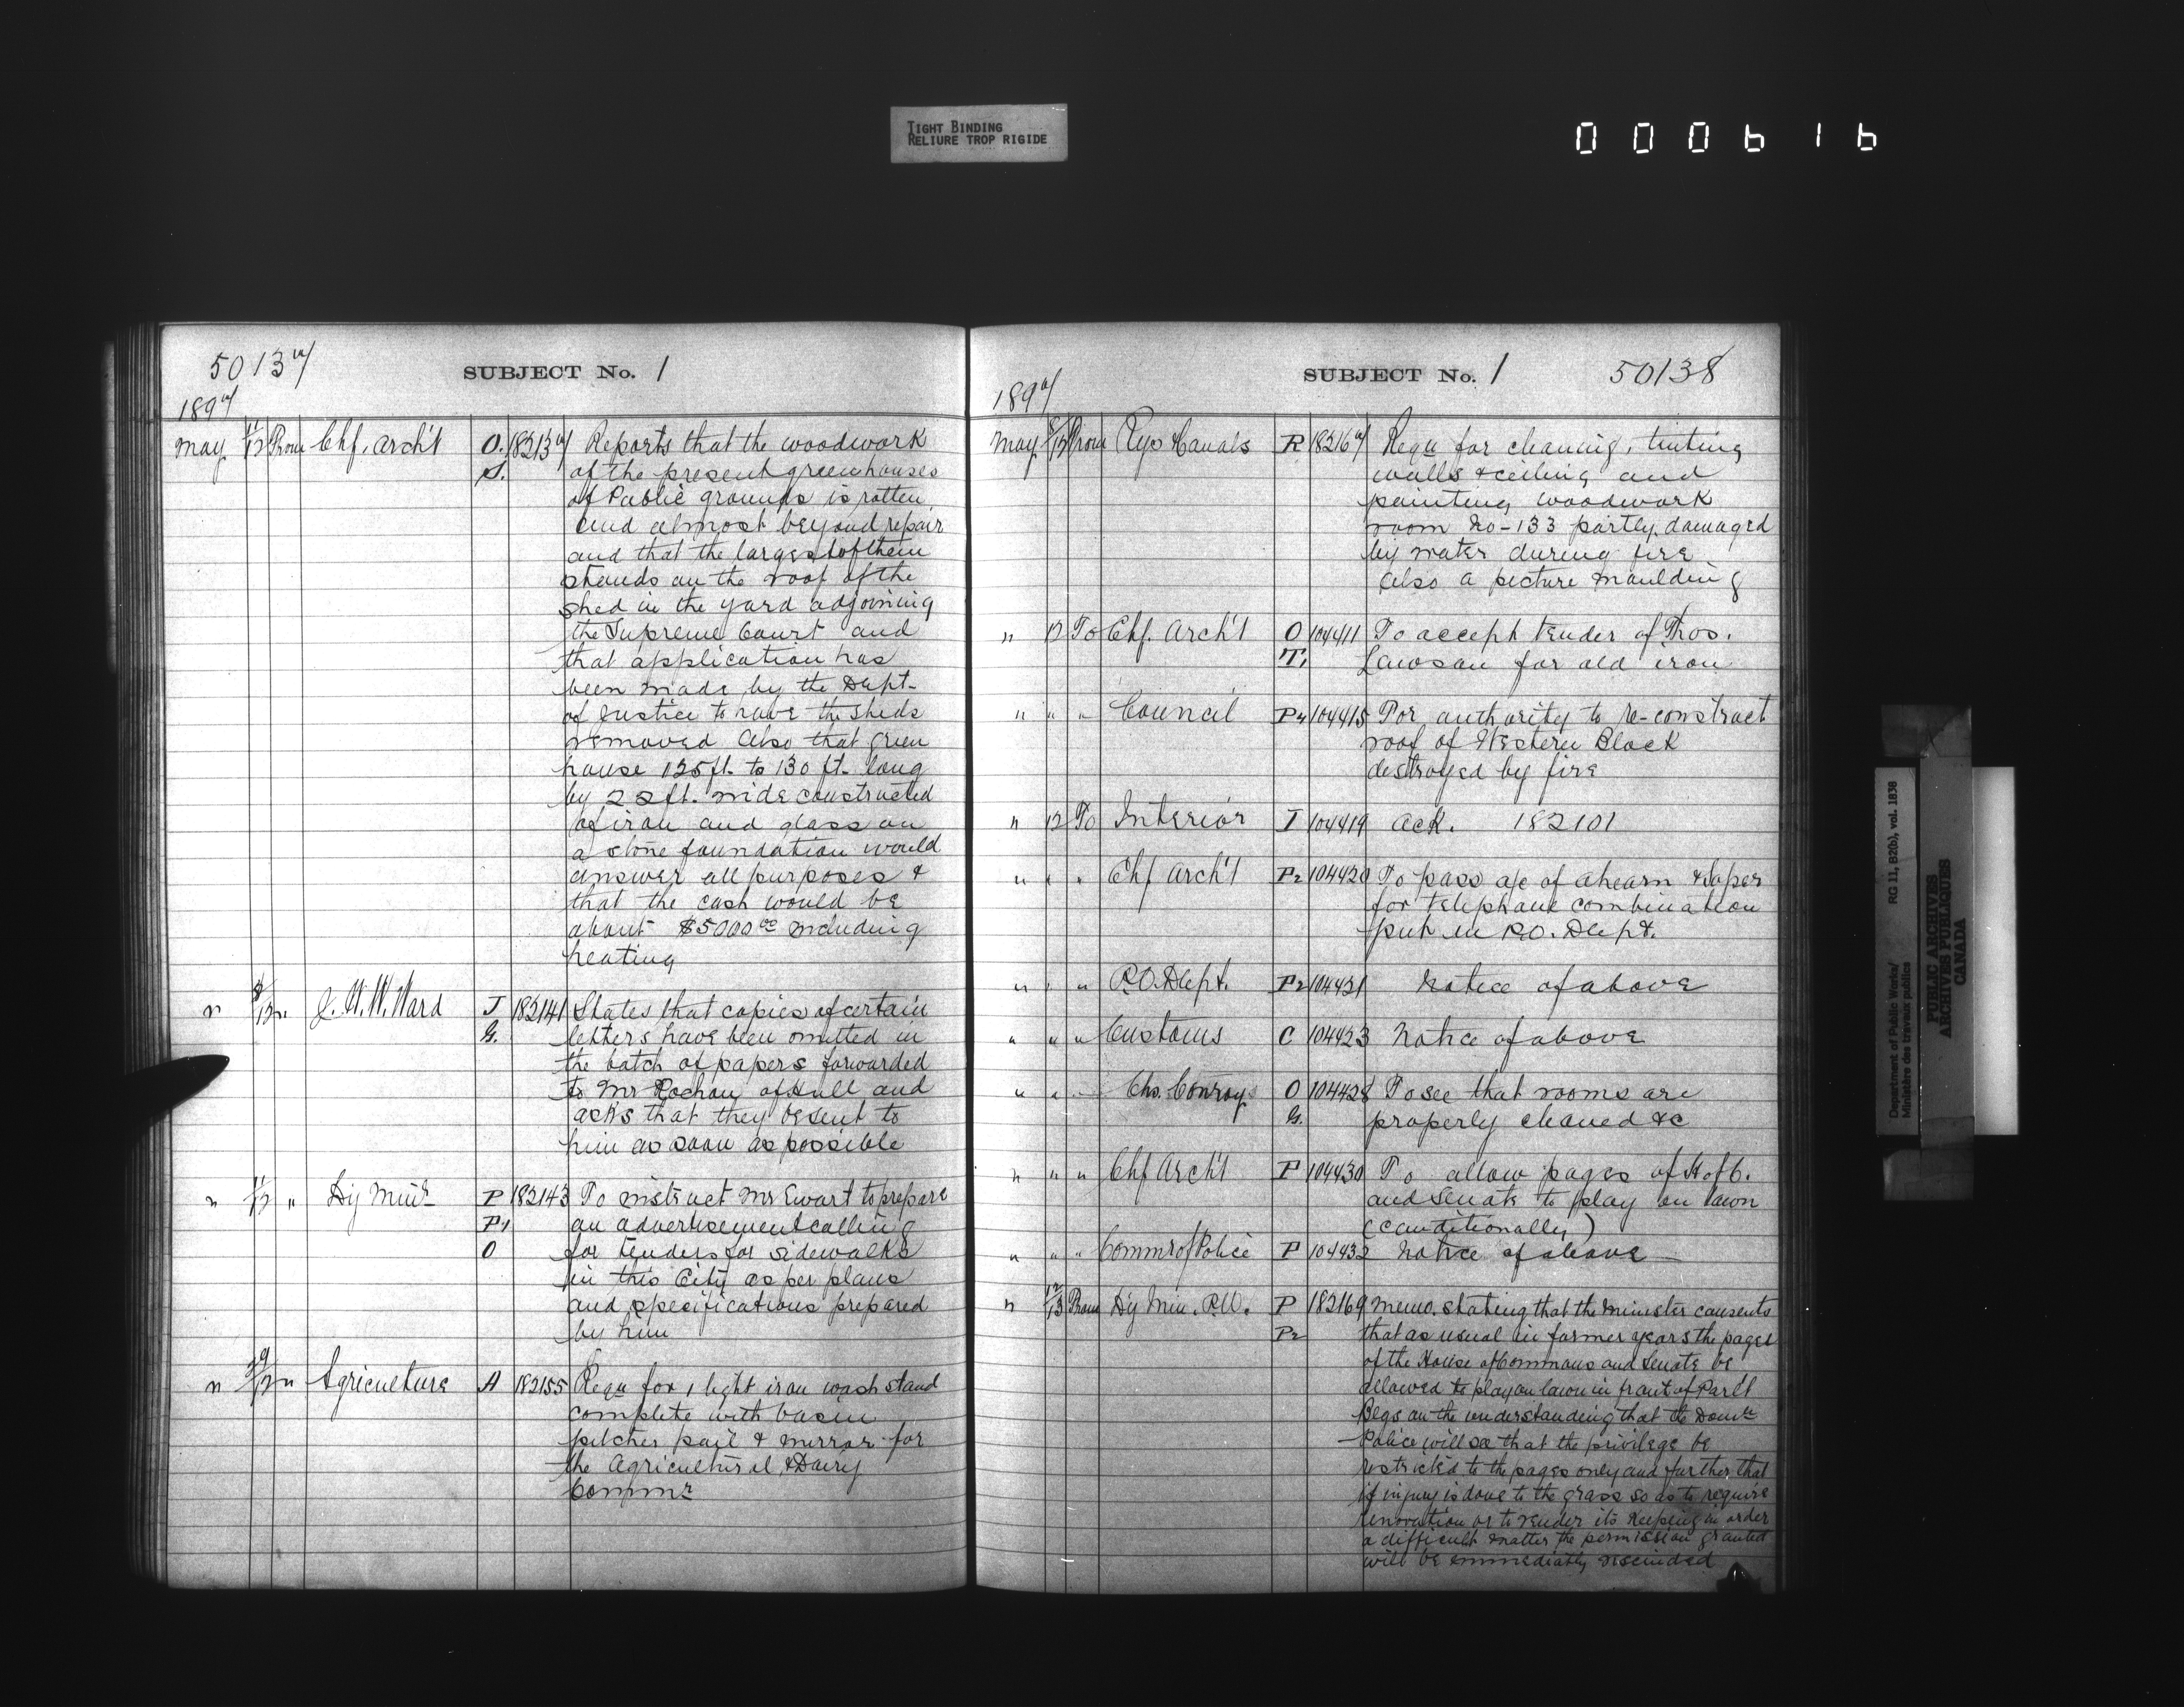 TIGHT BINDING
RELIURE TROP RIGIDE
000616
50137
SUBJECT No. 1
1897
May 11/12 From Chf. Arch't O. S. 182137 Reports that the woodwork
of the present greenhouses
of Public grounds is rotten
and almost beyond repair
and that the largest of them
stands on the roof of the
shed in the yard adjoining
the Supreme Court and
that application has
been made by the Dept.
of Justice to have the sheds
removed Also that green
house 125 ft. to 130 ft. long
by 22 ft. wide constructed
of iron and glass on
a stone foundation would
answer all purposes &
that the cash would be
about $5000 00 including
heating
" 8/12 " J. W. W. Ward J G. 182141 States that copies of certain
letters have been omitted in
the batch of papers forwarded
to Mr Rochon of Hull and
asks that they be sent to
him as soon as possible
" 11/12 " Dy Minr P P1 O 182143 To instruct Mr Ewart to prepare
an advertisement calling
for tenders for sidewalks
in this City as per plans
and specifications prepared
by him
" " Agriculture A 182155 Requ for 1 light iron wash stand
complete with basin
pitcher pail & mirror for
the Agricultural & Dairy
Commr
SUBJECT No. 1
50138
1897
May 8/12 From Rys & Canals R 182167 Requ for cleaning, tinting
walls & ceiling and
painting woodwork
room No-133 partly damaged
by water during fire
Also a picture moulding
" 12 To Chf. Arch't O T. 104411 To accept tender of Thos.
Lawson for old iron
" " " Council P4 104415 For authority to re-construct
roof of Western Block
destroyed by fire
" 12 To Interior I 104419 Ack. 182101
" " " Chf Arch't P2 104420 To pass a/c of Ahearn & Soper
for telephone combination
put in P.O. Dept.
" " " P.O. Dept. P2 104421 Notice of above
" " " Customs C 104423 Notice of above
" " " Chs. Conroy O G. 104428 To see that rooms are
properly cleaned &c
" " " Chf Arch't P 104430 To allow pages of H of C.
and Senate to play on lawn
(conditionally)
" " " Commr of Police P 104432 Notice of above
" 12/13 From Dy Min. P.W. P P2 182169 Memo. stating that the Minister consents
that as usual in former years the pages
of the House of Commons and Senate be
allowed to play on lawn in front of Parl't
Blgs on the understanding that the Domn
Police will see that the privilege be
restricted to the pages only and further that
if injury is done to the grass so as to require
renovation or to render its keeping in order
a difficult matter the permission granted
will be immediately rescinded
Department of Public Works/ RG 11, B2(b), vol. 1838
Ministère des travaux publics
PUBLIC ARCHIVES
ARCHIVES PUBLIQUES
CANADA